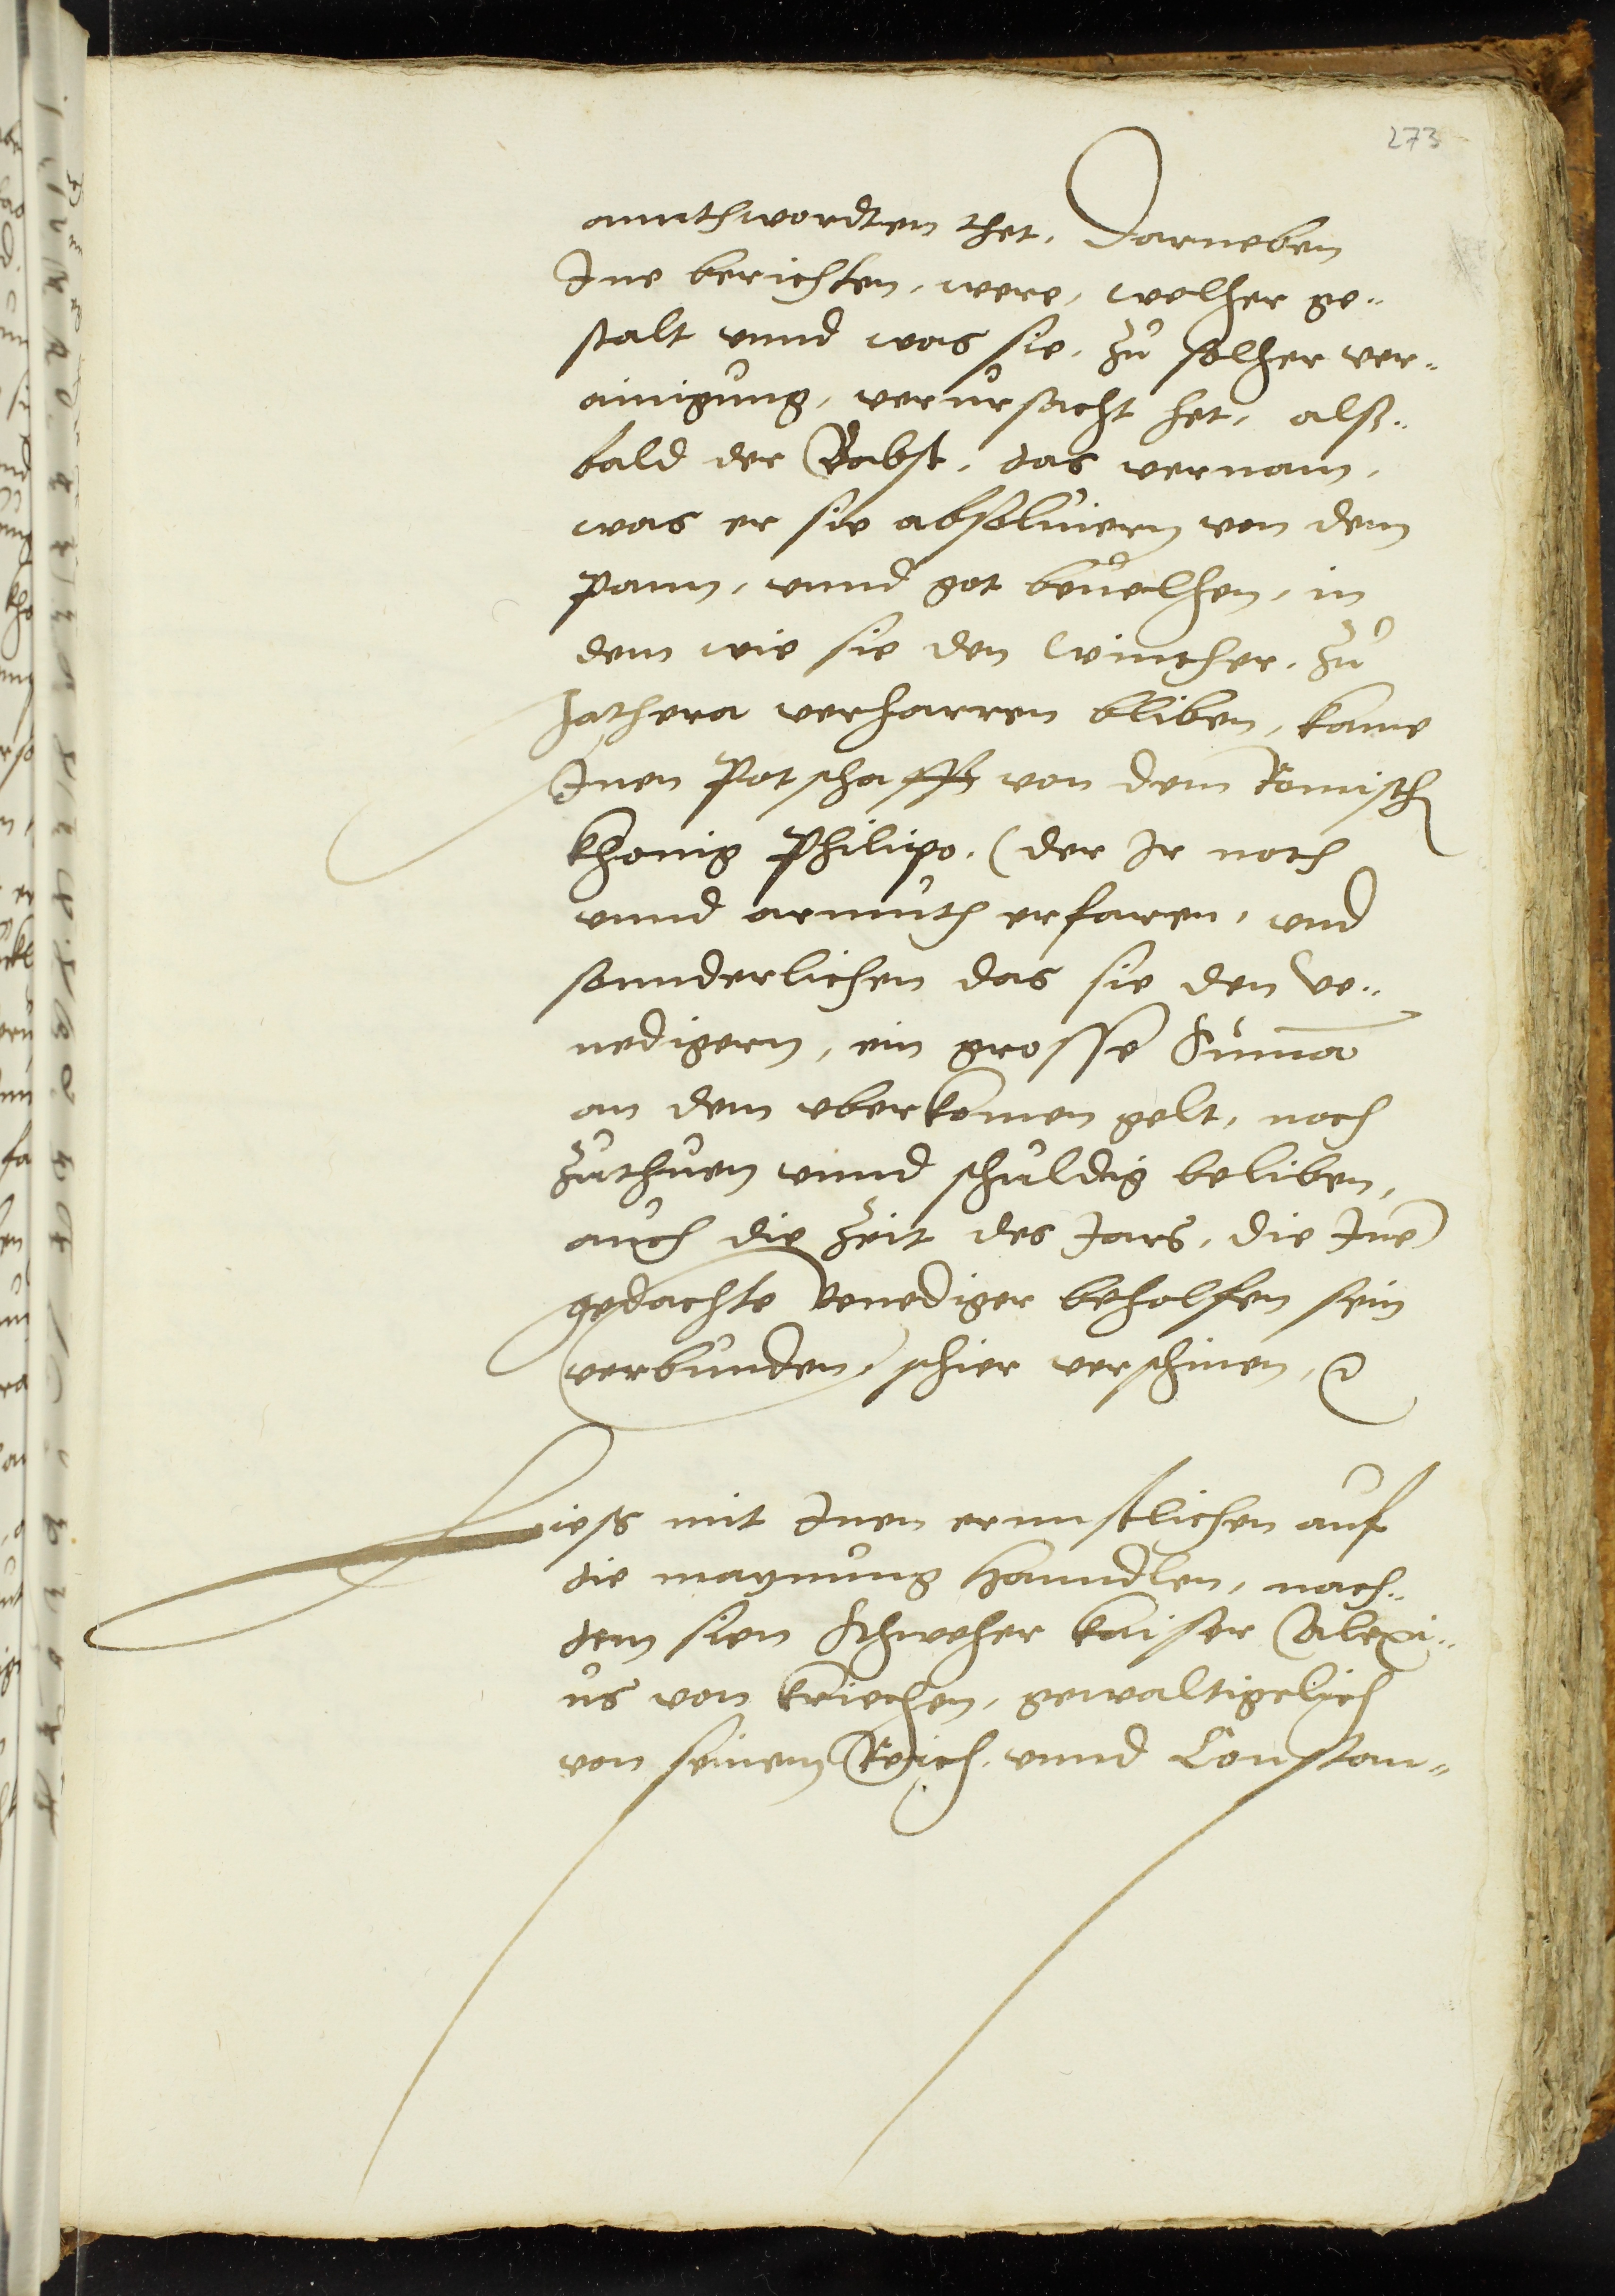 273
annthwordten thet, Darneben
Ine berichten, were, welher ge-
stalt vnnd was sie, zu solher ver-
ainigung, verursacht het, alß-
bald der Babst, das vernam,
was er sie absoluiern von dem
pann, vnnd got beuelhen, in
dem wie sie den Winther, zu
Jathera verharren bliben, kame
Inen Potschafft von dem Romisch
khonig Philipo, (der Ir noth
vnnd armuth erfaren, vnd
sonnderlichen das sie den Ve-
nedigern, ein grosse Suma
an dem vberkomen gelt, noch
zuthuen vnnd schuldig beliben,
auch die zeit des Jars, die Ine
gedachte Venediger beholfen sein
verbunden, schier verschinen,
Ließ mit Inen ernnstlichen auf
die maynung hanndlen, nach-
dem sien Schweher kaiser Alexi-
us von kriechen, gewaltigelich
von seinem Reich vnnd Constan-